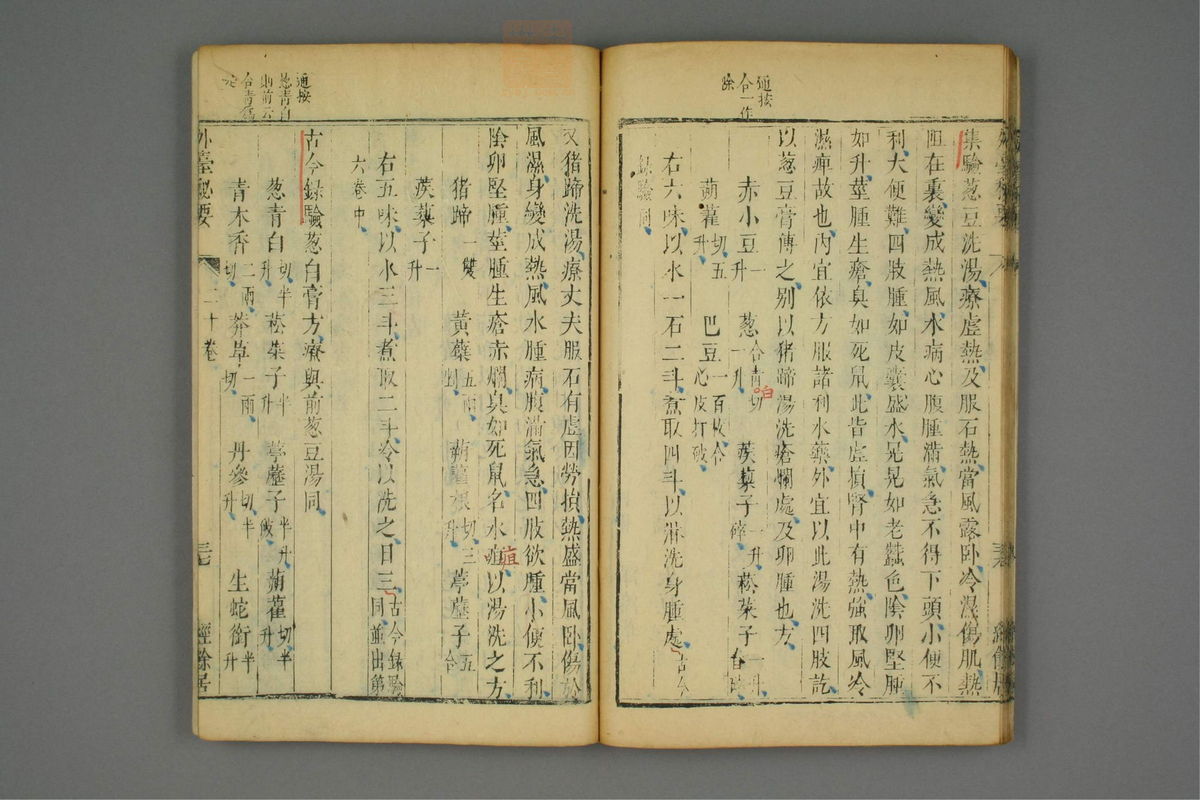 通按
合一作
除
集驗葱豆洗湯療虛熱及服石熱當風露卧冷濕傷肌熱
阻在裏變成熱風水病心腹腫滿氣急不得下頭小便不
利大便難四肢腫如皮囊盛水晃晃如老蠶色陰卵堅腫
如升莖腫生瘡臭如死鼠此皆虛損腎中有熱強取風冷
濕痺故也內宜依方服諸利水藥外宜以此湯洗四肢訖
以葱豆膏傅之别以猪蹄湯洗瘡爛處及卵腫也方
赤小豆一升 葱合青切一升 白 蒺藜子一升碎 菘菜子一升
蒴藋切五升 巴豆一百枚合心皮打破
右六味以水一石二斗煮取四斗以淋洗身腫處古今
錄驗同
又猪蹄洗湯療丈夫服石有虛因勞損熱盛當風卧傷於
風濕身變成熱風水腫病腹滿氣急四肢欲腫小便不利
陰卵堅腫莖腫生瘡赤爛臭如死鼠名水疽以湯洗之方
疽
猪蹄一雙 黄蘗五兩 蒴藋根切三升 葶藶子五合
蒺藜子一升
右五味以水三斗煮取二斗冷以洗之日三古今録驗同並出第
六卷中
通按
葱青白
則前云
合青爲
古今録驗葱白膏方療與前葱豆湯同
葱青白切半升 菘菜子半升 葶藶子半升 蒴藋切半升
青木香二兩切 莽草一兩切 丹參切半升 生蛇銜半升
外臺秘要 二十卷 經餘居